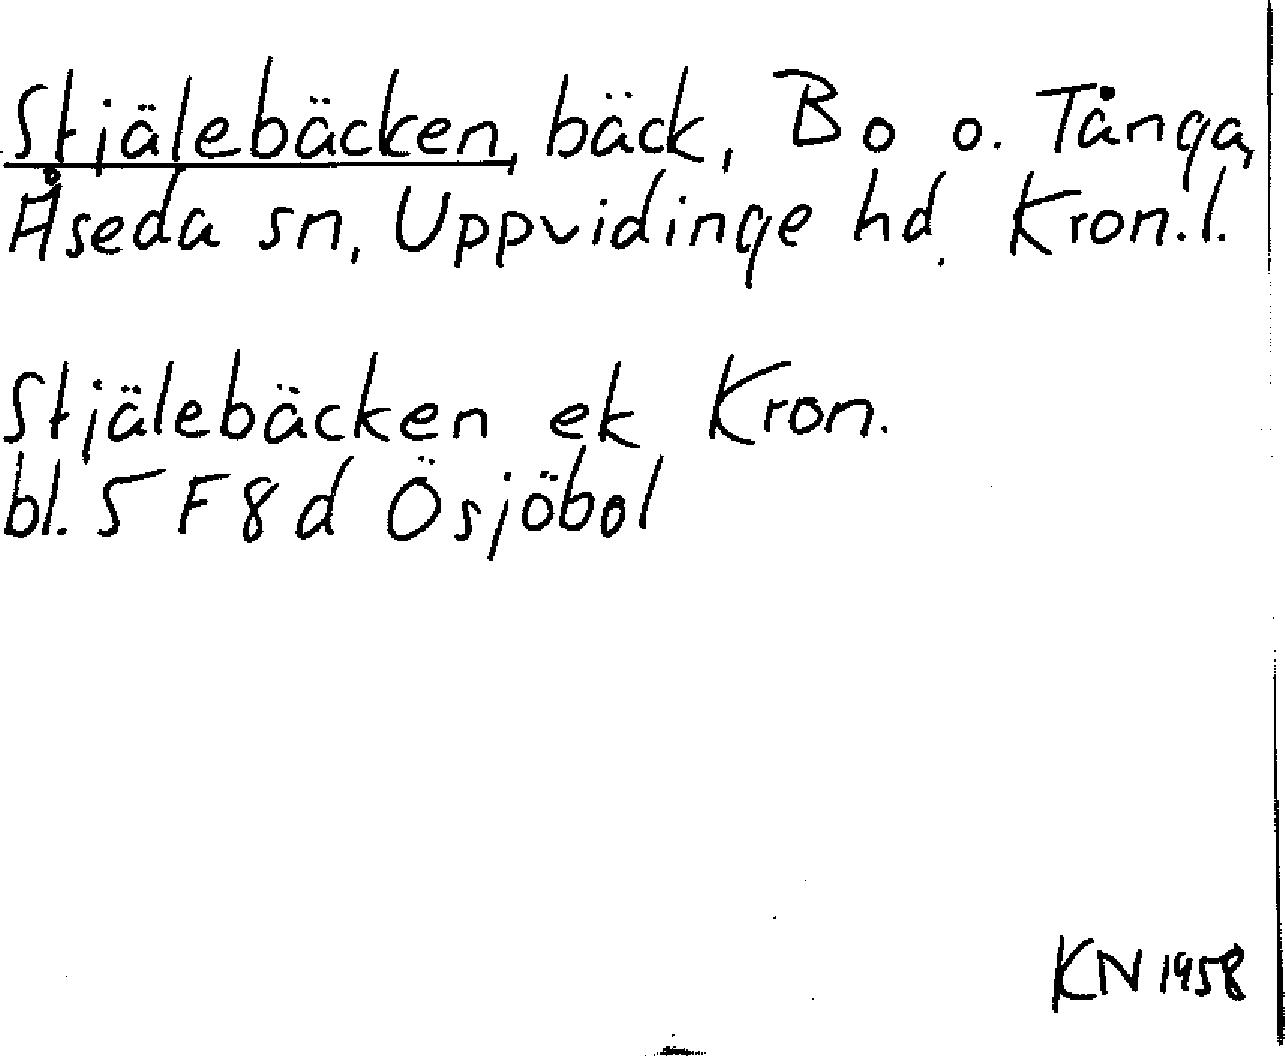 Stjälebäcken, bäck, Bo o. Tånga,
Åseda sn, Uppvidinge hd. Kron.l.
Stjälebäcken ek Kron.
bl. 5 F 8 d Ösjöbol
KN 1958